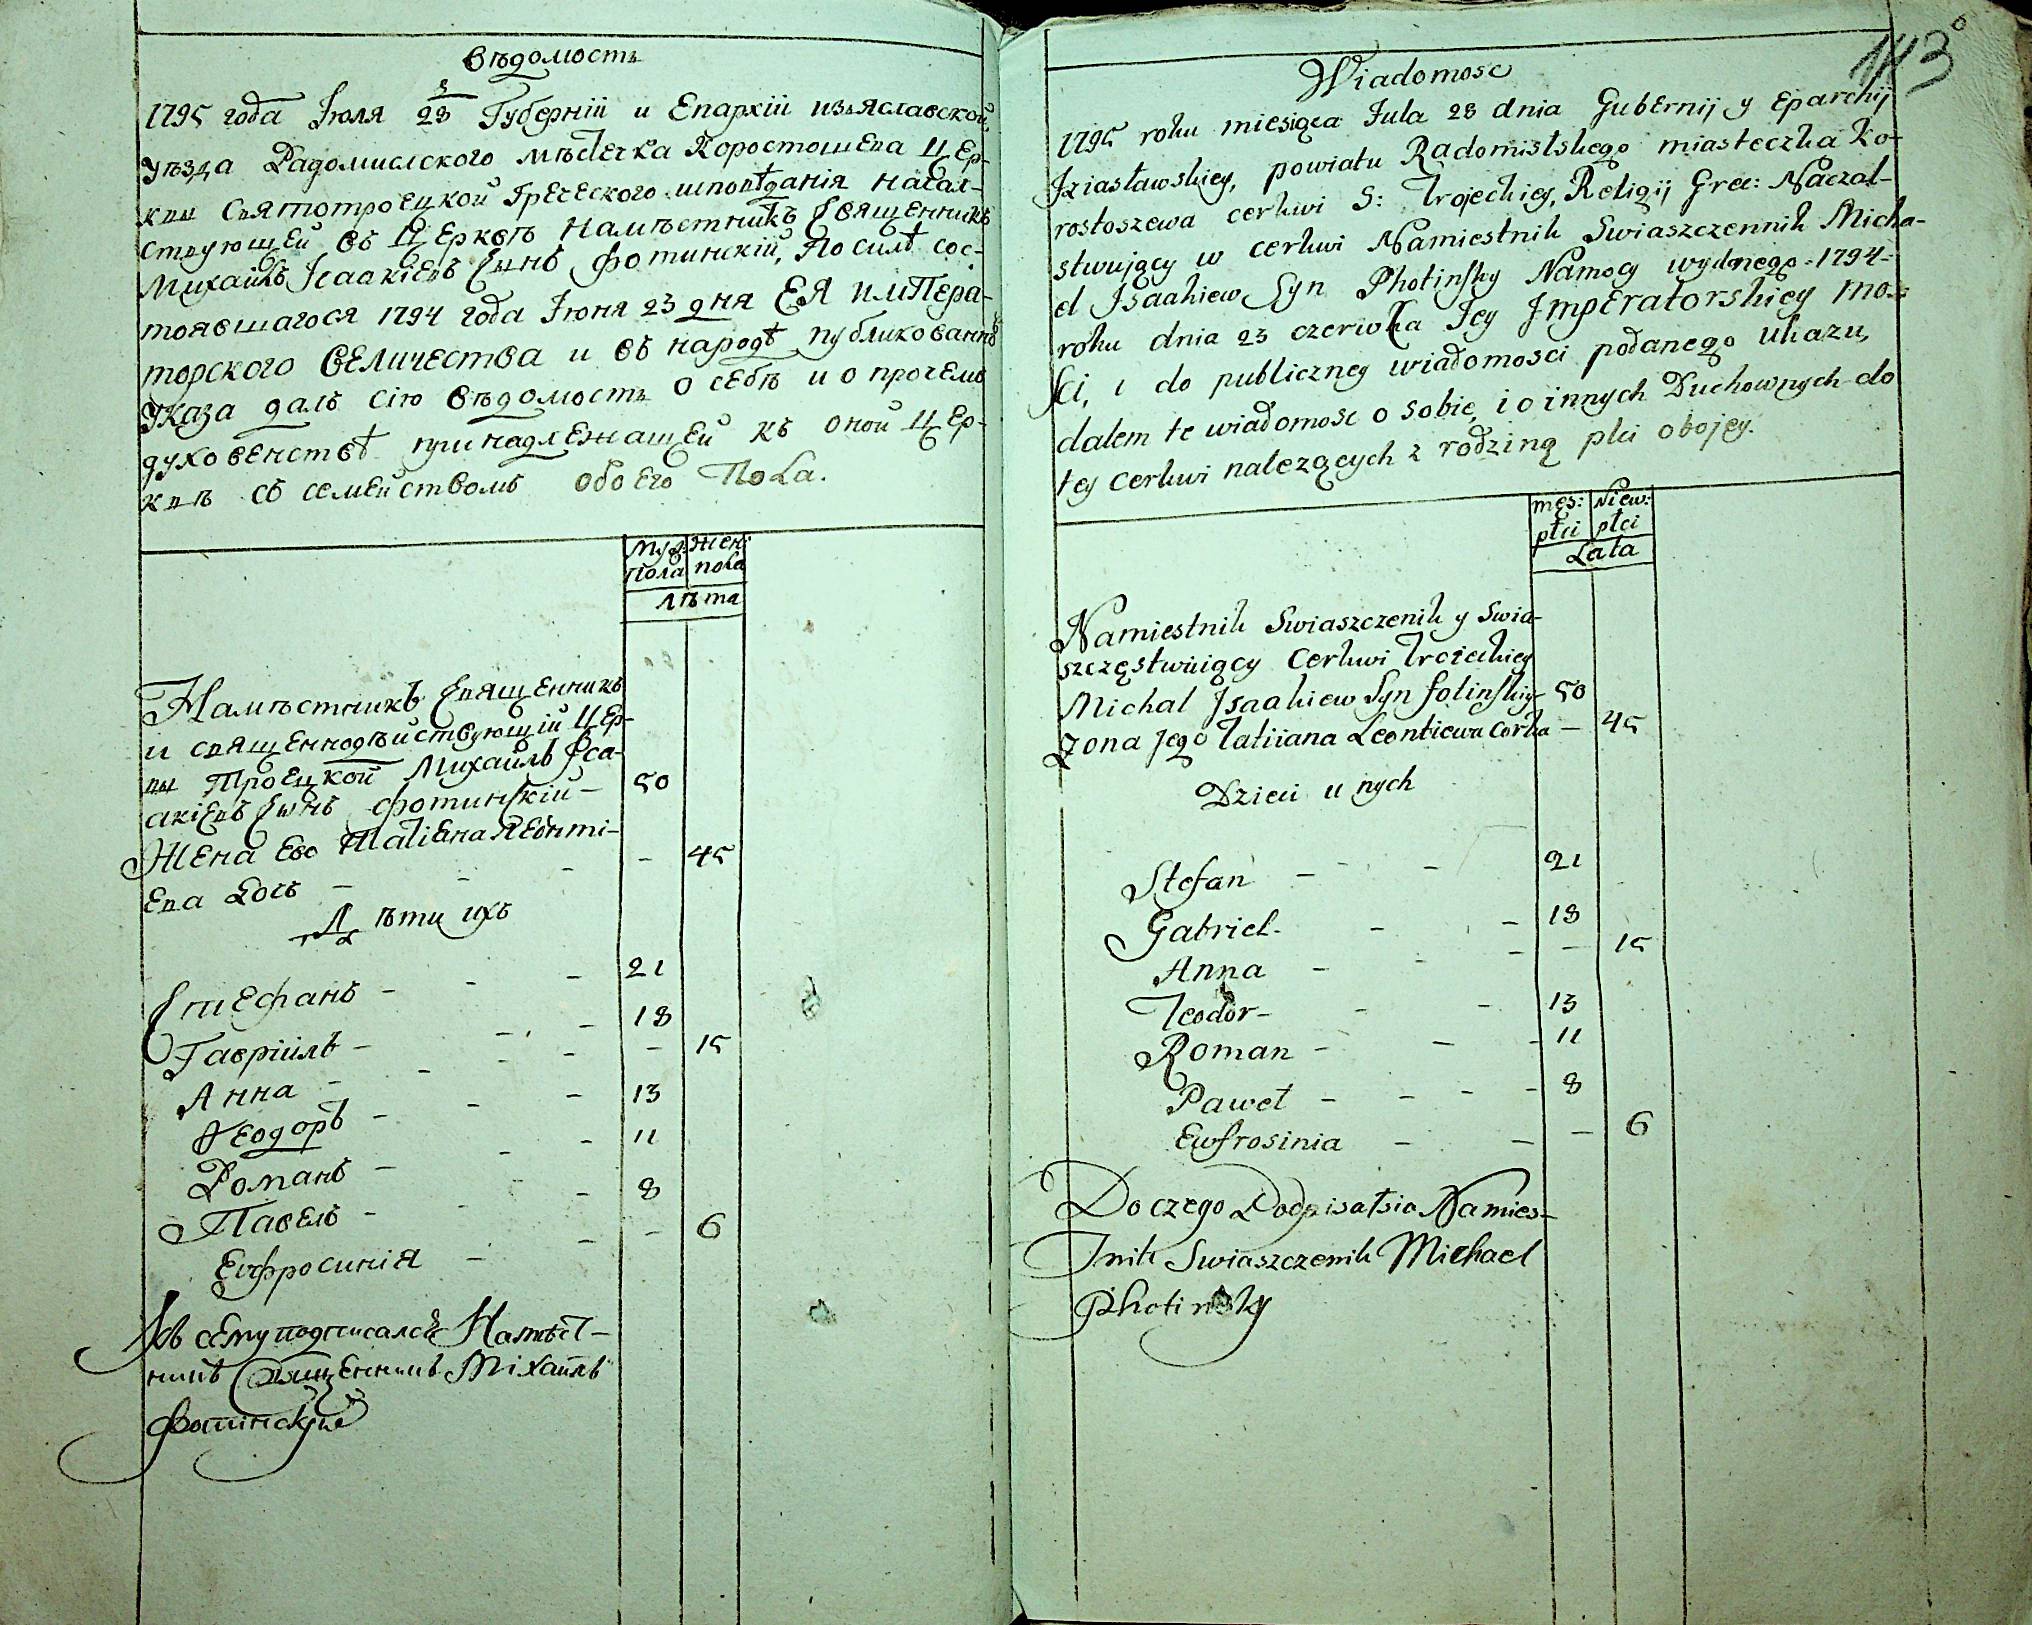 Вѣдомость
1795 года Іюля 28 Губерніи и Епархіи изъяславской,
уѣзда Радомислского мѣстечка Коростошева Цер-
кви Святотроецкой Греческого исповѣданія начал-
ствующей въ Церквѣ Намѣстникъ Священникъ
Михаилъ Ісаакіевъ Сынъ Фотинскій, По силѣ сос-
тоявшагося 1794 года Іюня 23 дня ЕЯ имПера-
торского Величества и въ народѣ публикованнѣ
Указа далъ сію Вѣдомость о себѣ и о прочемъ
духовенствѣ принадлежащей къ оной Цер-
квѣ съ семействомъ обоего Пола.
Муж: Жен:
Пола пола
Лѣта
Намѣстникъ Священникъ
и священнодѣйствующій Цер-
вы Троецкой Михаилъ Іса-
акіевъ Сынъ Фотинскій – 50
Жена Его Татіяна Леонті-
Ева Дочь – – – – 45
Дѣти ихъ
Стефанъ – – – 21
Гавріилъ – – – 18
Анна – – – – 15
Ѳеодоръ – – – 13
Романъ – – – 11
Павелъ – – – 8
Евфросинія – – – 6
Къ сему подписался Намѣст-
никъ Священникъ Міхаилъ
Фотінскій
143
6
Wiadomosc
1795 roku miesiąca Jula 28 dnia Gubernij y Eparchij
Iziasławskiey, powiatu Radomislskego miasteczka Ko-
rostoszewa cerkwi S: Trojeckiey, Religij Grec: Naczal-
stwujący w cerkwi Namiestnik Swiaszczennik Micha-
el Isaakiew Syn Photinsky Namocy wydanego 1794-
roku dnia 23 czerwca Jey Imperatorskiey Mo-
sci, i do publiczney wiadomosci podanego ukazu,
dalem te wiadomosc o sobie, i o innych Duchownych do
tey cerkwi nalezących z rodziną płci obojey.
męs: Niew:
płci płci
Lata
Namiestnik Swiaszczenik y Swia-
szczęstwuiący Cerkwi Troieckiey
Michal Isaakiew Syn fotinskiy – 50
Zona Jego Tatiiana Leontiewa Corka – 45
Dzieci u nych
Stefan – – 21
Gabriel. – – 18
Anna – – – – 15
Teodor – – – 13
Roman – – – 11
Paweł – – – – 8
Ewfrosinia – – – 6
Do czego Podpisałsia Namies-
tnik Swiaszczenik Michael
Photinsky